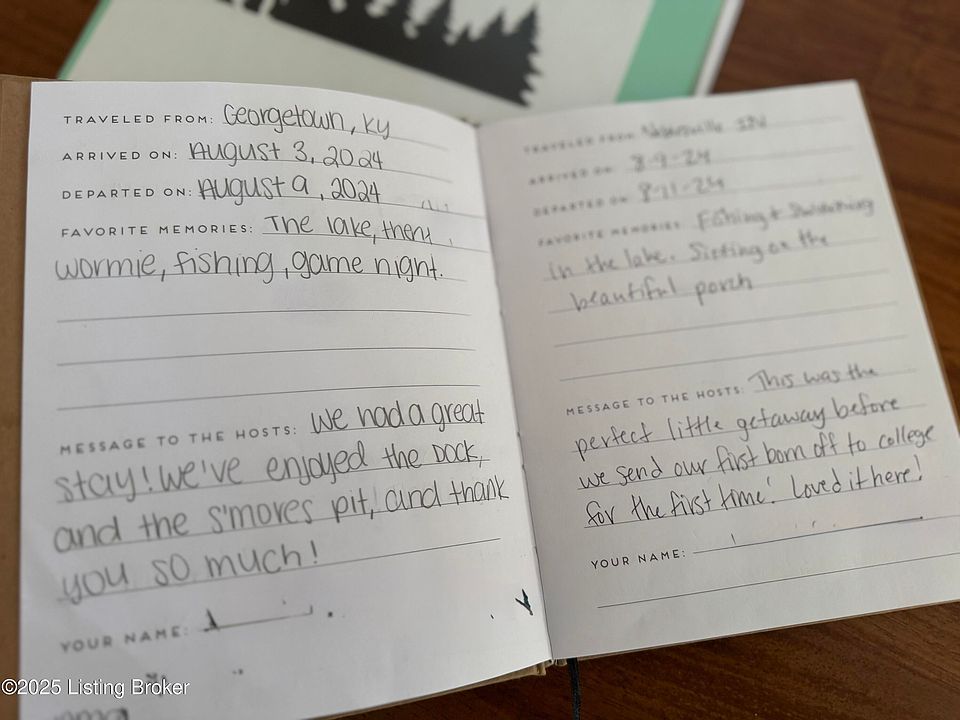 TRAVELED FROM: Georgetown, KY
ARRIVED ON: August 3, 2024
DEPARTED ON: August 9, 2024
FAVORITE MEMORIES: The lake,
wormie, fishing, game night.
MESSAGE TO THE HOSTS: We had a great
stay! We've enjoyed the DOCK,
and the s'mores pit, and thank
you so much!
YOUR NAME:
TRAVELED FROM: Noblesville IN
ARRIVED ON: 8-9-24
DEPARTED ON: 8-11-24
FAVORITE MEMORIES: Fishing & Swimming
in the lake. Sitting on the
beautiful porch
MESSAGE TO THE HOSTS: This was the
perfect little getaway before
we send our first born off to college
for the first time! Loved it here!
YOUR NAME:
©2025 Listing Broker